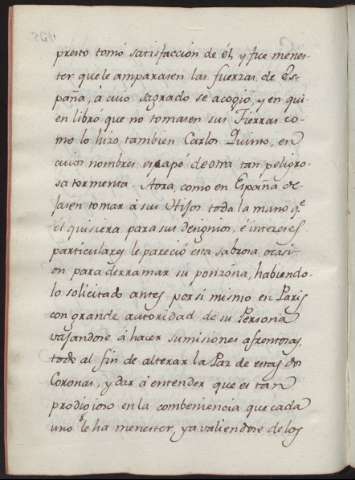 presto tomo satisfacción de él, y fue menes-
ter que le amparasen las fuerzas de Es-
paña, á cuio sagrado se acogió, y en qui-
en libró que no tomasen sus Tierras co-
mo lo hizo tambien Carlos Quinto, en
cuios nombres escapó de otra tan peligro-
sa tormenta. Aora, como en España de-
jasen tomar á sus Hijos toda la mano q.e
él quisiera para sus designios, é intereses
particulares le pareció esta sabrosa ocasi-
on para derramar su ponzoña, habiendo-
lo solicitado antes por si mismo en Paris
con grande autoridad de su Persona
vajandose á hacer sumisiones afrentosas
todo al fin de alterar la Paz de estas dos
Coronas, y dar á entender que es tan
prodigioso en la combeniencia que cada
uno le ha menester, ya valiendose de los